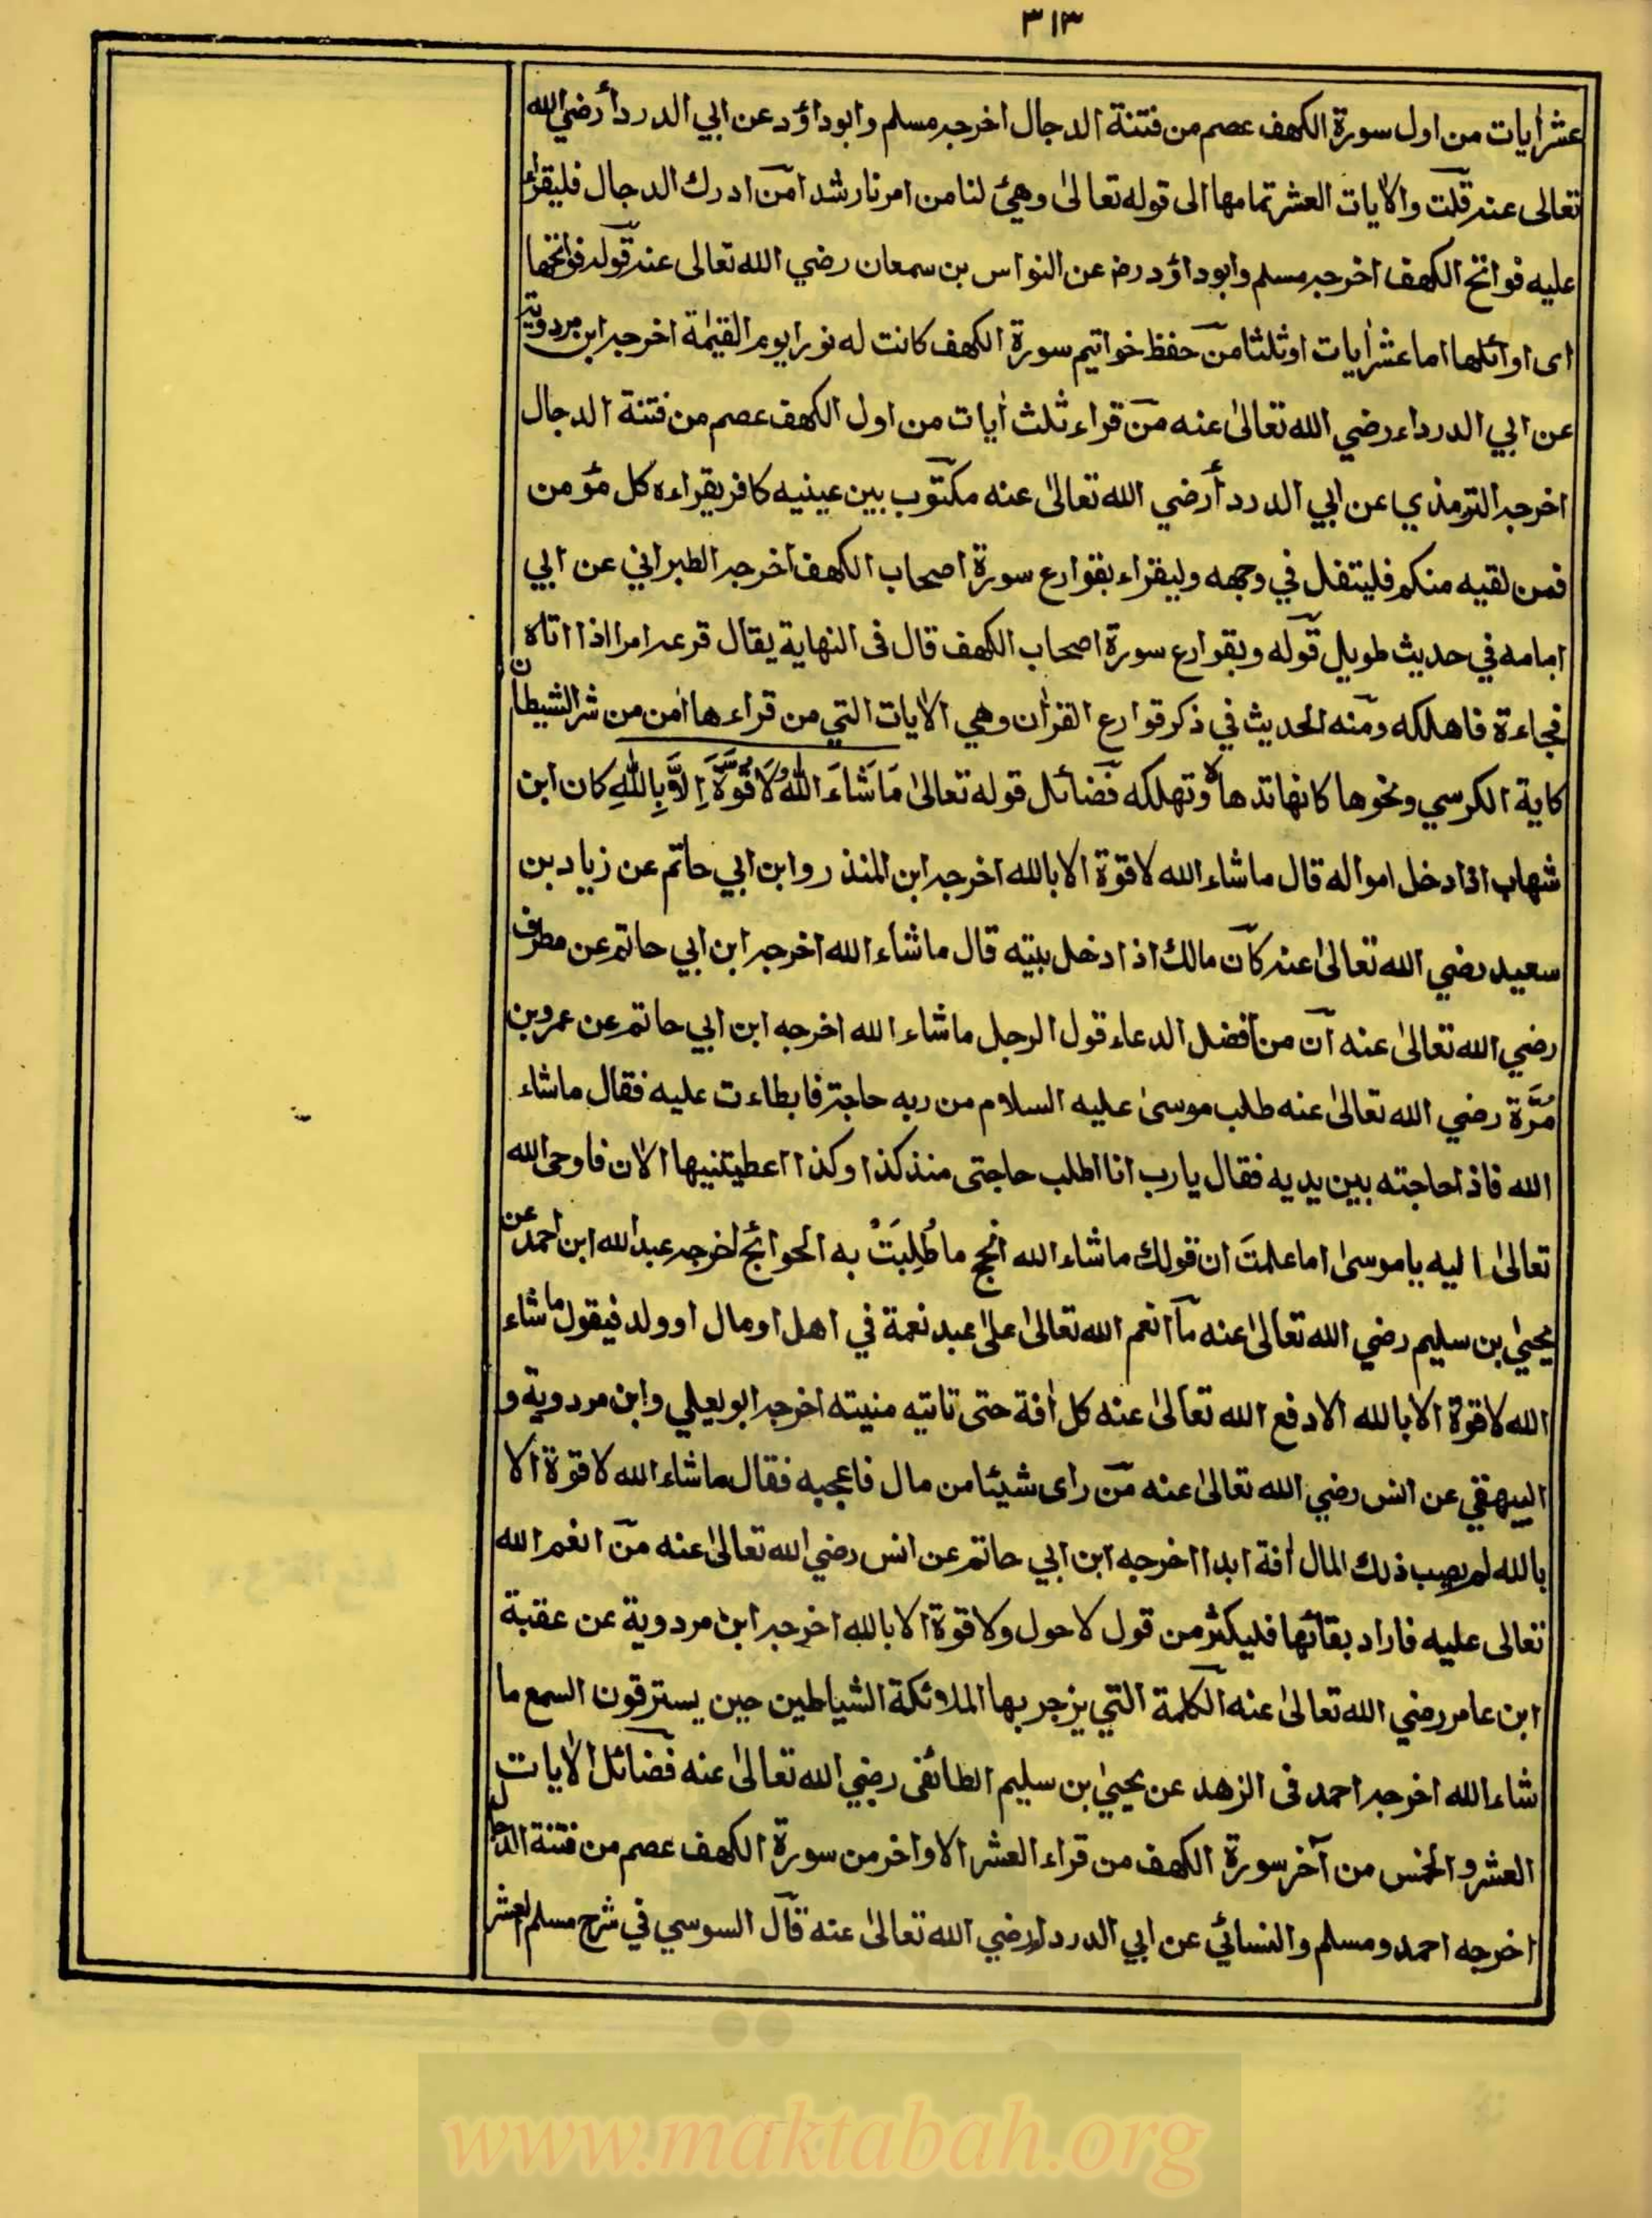 ٣١٣
عشر اٰيات من اول سورة الكهف عصم من فتنة الدجال اخرجه مسلم وابوداؤد عن ابي الدردأ رضي الله
تعالى عنه قلت والاٰيات العشر تمامها الى قوله تعالىٰ وهيئ لنا من امرنا رشدا من ادرك الدجال فليقراء
عليه فواتح الكهف اخرجه مسلم وابوداؤد رض عن النواس بن سمعان رضي الله تعالى عنه قوله فواتحها
اى اوائلها اما عشر اٰيات او ثلثا من حفظ خواتيم سورة الكهف كانت له نورا يوم القيٰمة اخرجه ابن مردوية
عن ابي الدرداء رضي الله تعالىٰ عنه من قراء ثلث اٰيات من اول الكهف عصم من فتنة الدجال
اخرجه الترمذي عن ابي الدردأ رضي الله تعالىٰ عنه مكتوب بين عينيه كافر يقراءه كل مؤمن
فمن لقيه منكم فليتفل في وجهه وليقراء بقوارع سورة اصحاب الكهف اخرجه الطبراني عن ابي
امامه في حديث طويل قوله وبقوارع سورة اصحاب الكهف قال فى النهاية يقال قرعه امر اذا اتاه
فجاءة فاهلكه ومنه الحديث في ذكر قوارع القراٰن وهي الاٰيات التي من قراءها امن من شر الشيطان
كاية الكرسي ونحوها كانها تدهاه وتهلكه فضائل قوله تعالىٰ مَا شَاءَ اللّٰهُ لَا قُوَّةَ اِلَّا بِاللّٰهِ كان ابن
شهاب اذا دخل امواله قال ما شاء الله لا قوة الا بالله اخرجه ابن المنذر وابن ابي حاتم عن زياد بن
سعيد رضي الله تعالىٰ عنه كان مالك اذا دخل بيته قال ما شاء الله اخرجه ابن ابي حاتم عن مطرف
رضي الله تعالىٰ عنه ان من افضل الدعاء قول الرجل ما شاء الله اخرجه ابن ابي حاتم عن عمرو بن
مُرَّة رضي الله تعالىٰ عنه طلب موسىٰ عليه السلام من ربه حاجة فابطاءت عليه فقال ما شاء
الله فاذا حاجته بين يديه فقال يا رب انا اطلب حاجتى منذ كذا وكذا اعطيتنيها الاٰن فاوحى الله
تعالىٰ اليه يا موسىٰ اما علمتَ ان قولك ما شاء الله انجح ما طُلِبَتْ به الحوائج اخرجه عبد الله ابن احمد عن
يحيىٰ بن سليم رضي الله تعالىٰ عنه ما انعم الله تعالىٰ علىٰ عبد نعمة في اهل او مال او ولد فيقول ما شاء
الله لا قوة الا بالله الا دفع الله تعالىٰ عنه كل اٰفة حتى تاتيه منيته اخرجه ابويعلي وابن مردوية و
البيهقي عن انس رضي الله تعالىٰ عنه من راى شيئا من مال فاعجبه فقال ما شاء الله لا قوة الا
بالله لم يصب ذلك المال اٰفة ابدا اخرجه ابن ابي حاتم عن انس رضي الله تعالىٰ عنه من انعم الله
تعالى عليه فاراد بقائها فليكثر من قول لا حول ولا قوة الا بالله اخرجه ابن مردوية عن عقبة
ابن عامر رضي الله تعالىٰ عنه الكلمة التي يزجر بها الملائكة الشياطين حين يسترقون السمع ما
شاء الله اخرجه احمد فى الزهد عن يحيىٰ بن سليم الطائفى رضي الله تعالىٰ عنه فضائل الاٰيات
العشر والخمس من آخر سورة الكهف من قراء العشر الاواخر من سورة الكهف عصم من فتنة الدجال
اخرجه احمد ومسلم والنسائي عن ابي الدرداء رضي الله تعالىٰ عنه قال السوسي في شرح مسلم العشر
www.maktabah.org